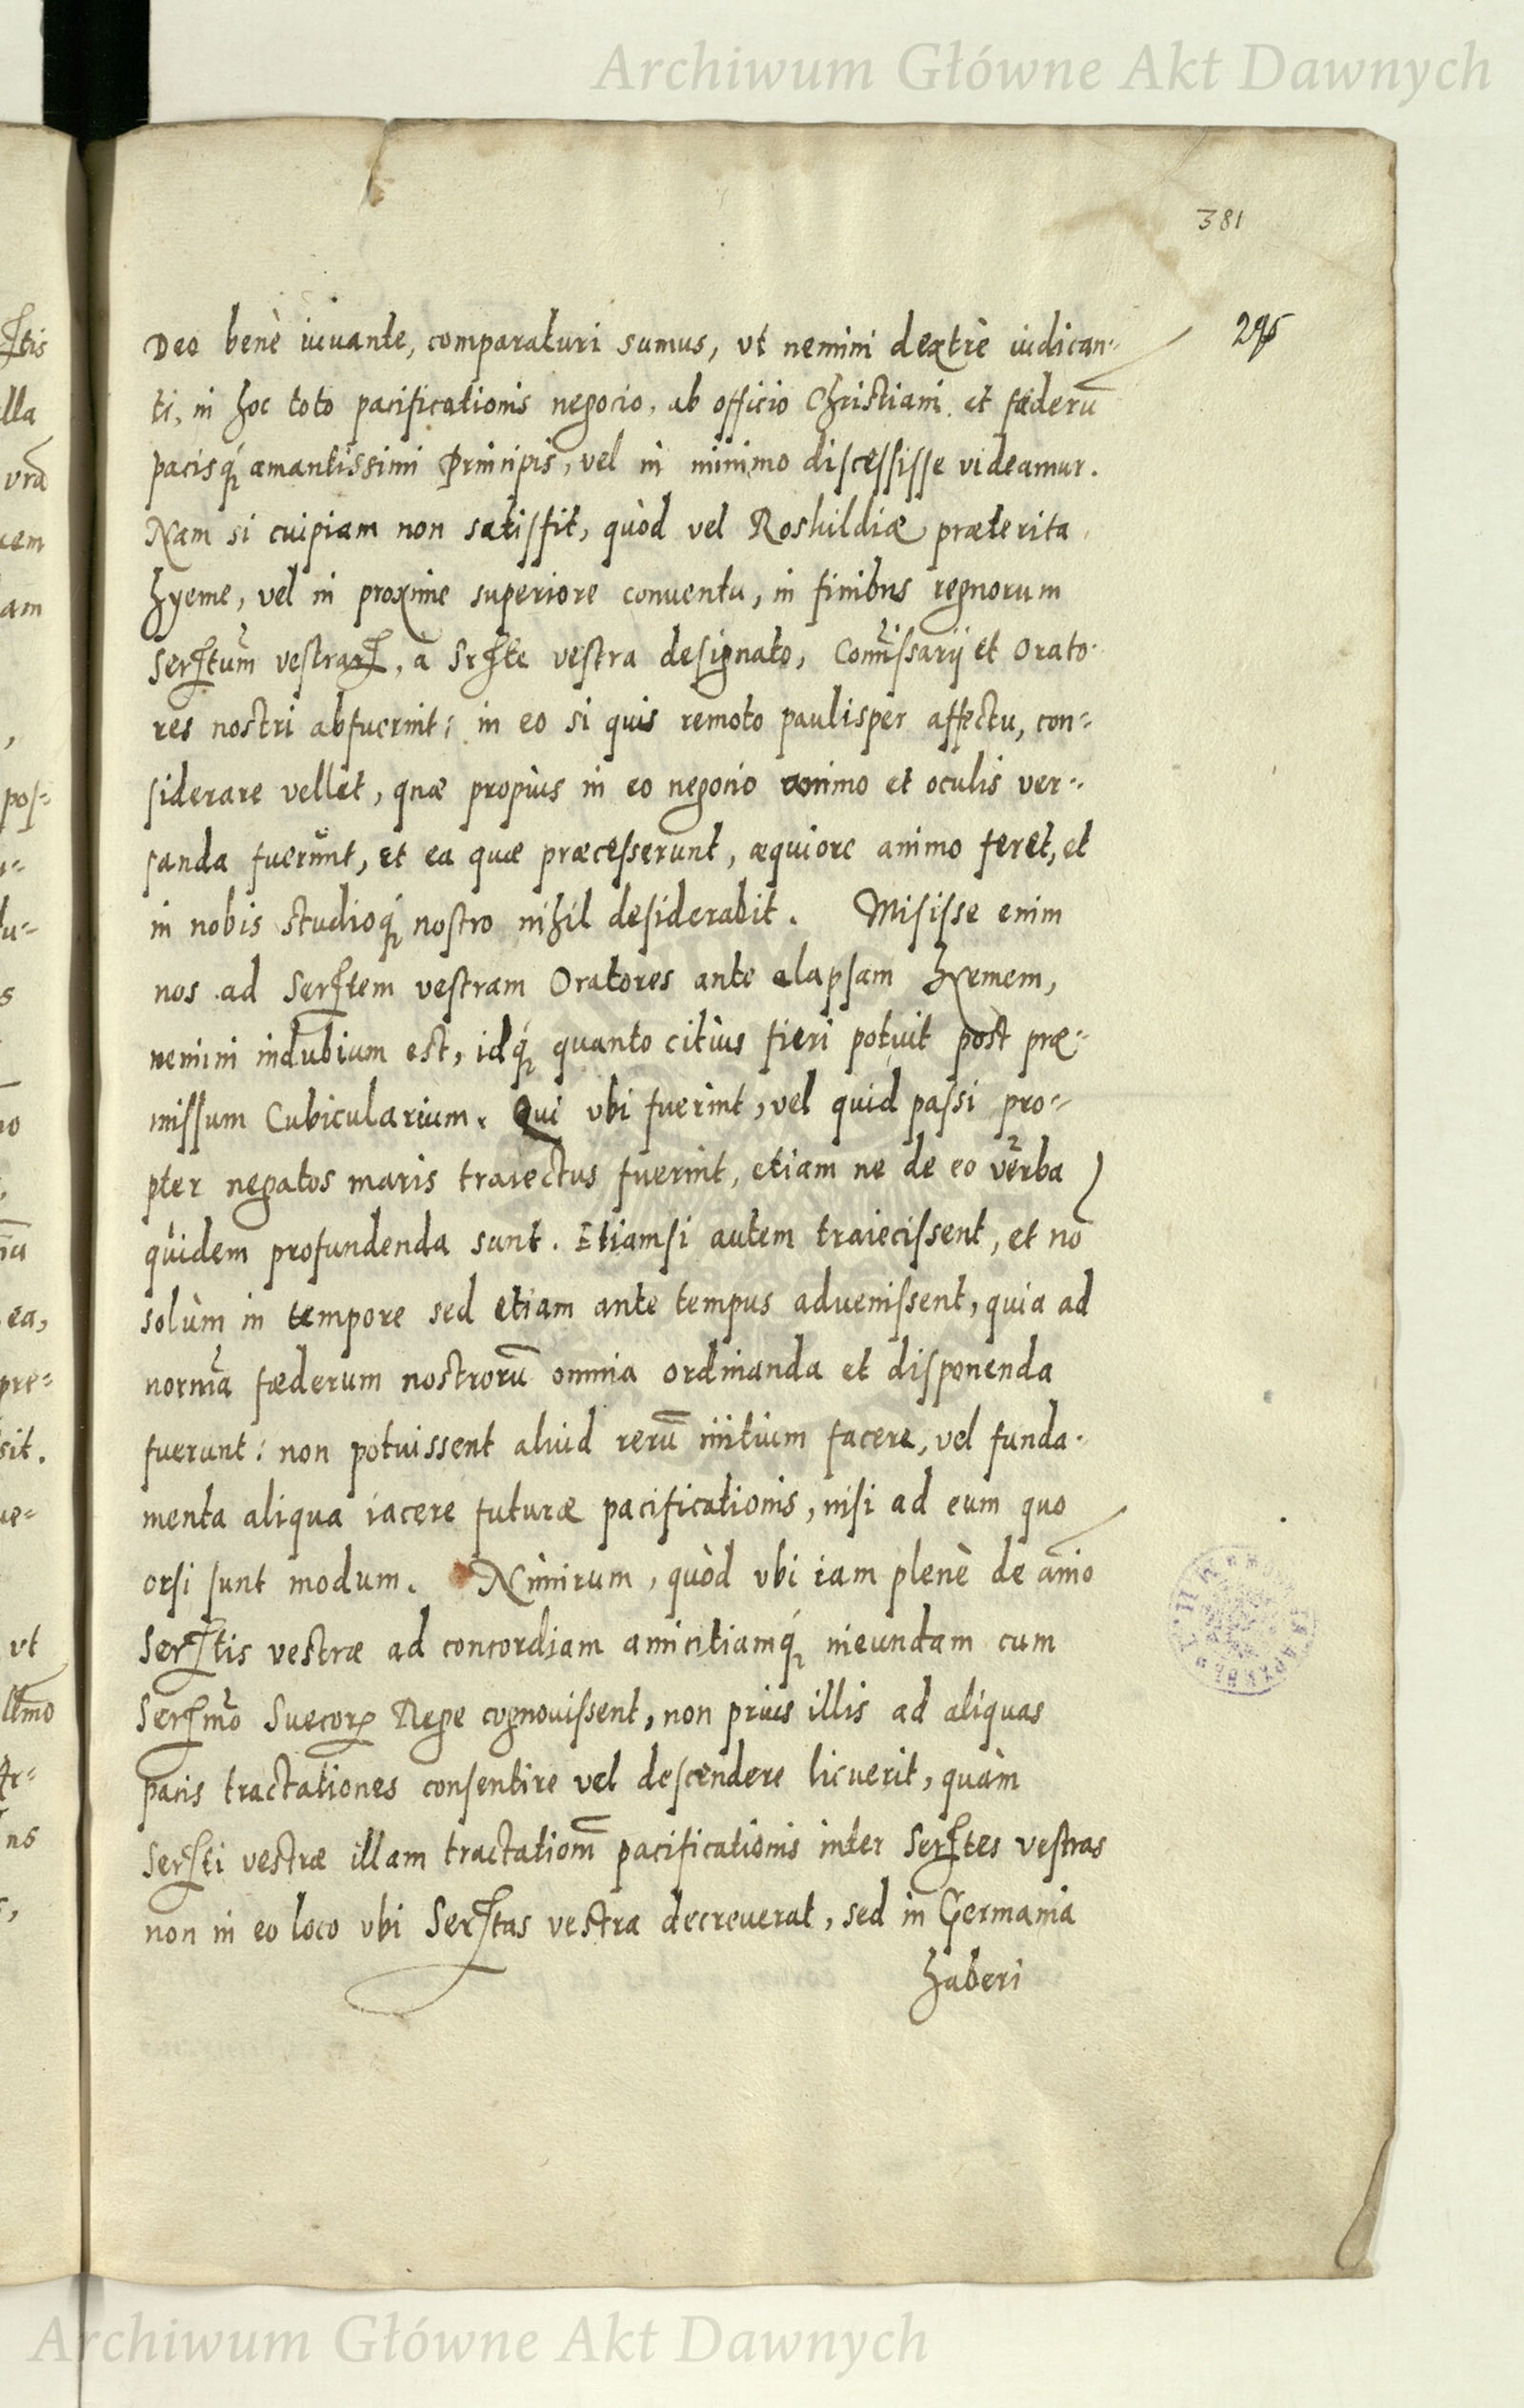 Archiwum Główne Akt Dawnych
381
295
Deo benè iuuante, comparaturi sumus, vt nemini dextrè iudican-
ti, in hoc toto pacificationis negocio, ab officio Christiani et fœderū
pacisq́ amantissimi Principis, vel in minimo discessisse videamur.
Nam si cuipiam non satisfit, quòd vel Roshildiæ præterita
hyeme, vel in proxime superiore conuentu, in finibus regnorum
Serttum vestrar, à Srte vestra designato, Comissarij et Orato-
res nostri abfuerint: in eo si quis remoto paulisper affectu, con-
siderare vellet, quæ propiùs in eo negocio animo et oculis ver-
sanda fuerunt, et ea quæ præcesserunt, æquiore animo feret, et
in nobis studioq́ nostro nihil desiderabit. Misisse enim
nos ad Sertem vestram Oratores ante elapsam hyemem,
nemini indubium est, idq́ quanto citiùs fieri potuit post præ-
missum Cubicularium. Qui vbi fuerint, vel quid passi pro-
pter negatos maris traiectus fuerint, etiam ne de eo verba
quidem profundenda sunt. Etiamsi autem traiecissent, et nō
solùm in tempore sed etiam ante tempus aduenissent, quia ad
normā fœderum nostrorū omnia ordinanda et disponenda
fuerunt: non potuissent aliud rerū initium facere, vel funda-
menta aliqua iacere futuræ pacificationis, nisi ad eum quo
orsi sunt modum. Nimirum, quòd vbi iam plenè de aīo
Sertis vestræ ad concordiam amicitiamq́ ineundam cum
Sermo Suecorꝝ Rege cognouissent, non prius illis ad aliquas
pacis tractationes consentire vel descendere licuerit, quàm
Serti vestræ illam tractationē pacificationis inter Sertes vestras
non in eo loco vbi Sertas vestra decreuerat, sed in Germania
haberi
Archiwum Główne Akt Dawnych